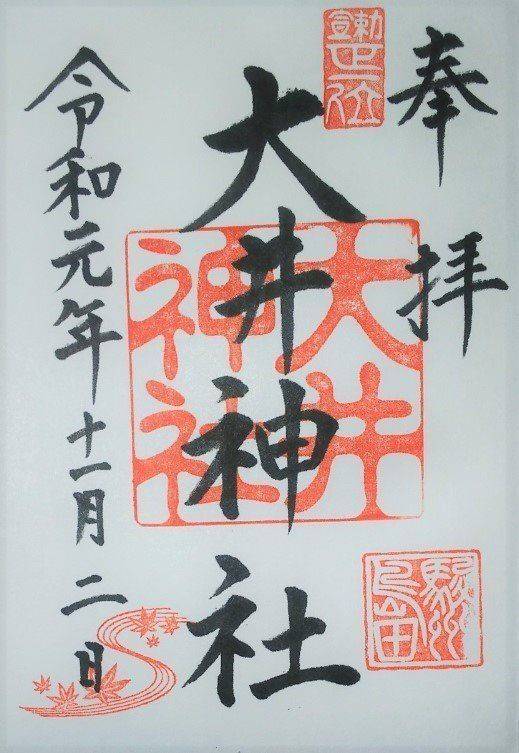 奉拝
勅宣正一位
大井神社
大井神社
駿州島田
令和元年十一月二日